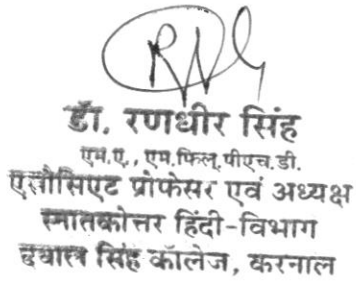 डॉ. रणधीर सिंह
एम.ए., एम.फिल्.पीएच.डी.
एसौसिएट प्रोफेसर एवं अध्यक्ष
स्नातकोत्तर हिंदी-विभाग
दयाल सिंह कॉलेज, करनाल